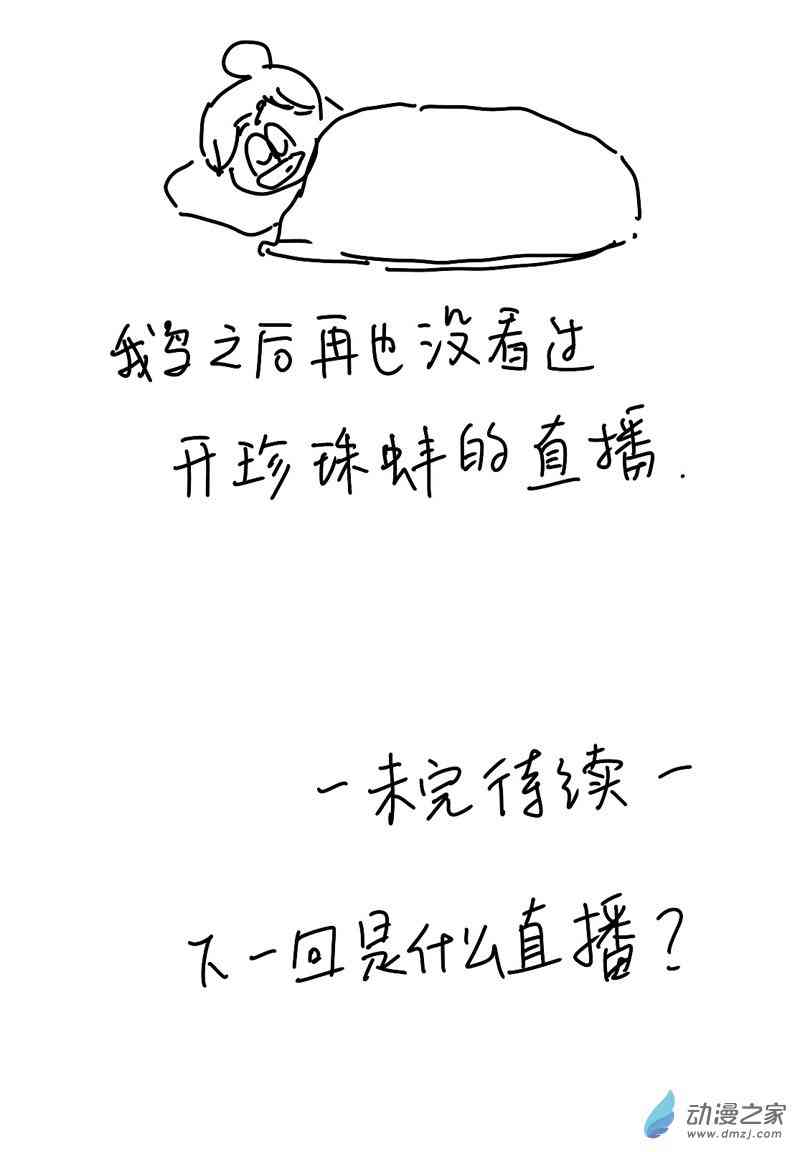 我鸟之后再也没看过
开珍珠蚌的直播.
-未完待续-
下一回是什么直播?
动漫之家
www.dmzj.com